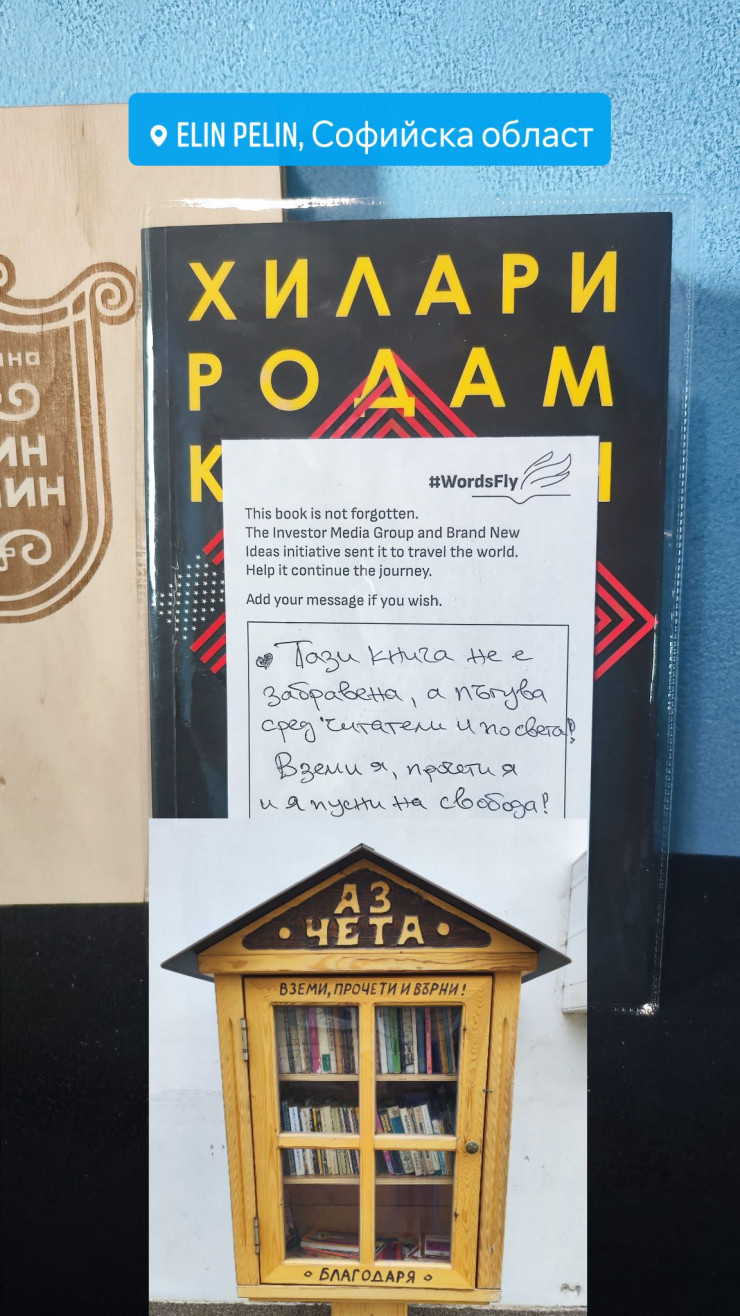 ELIN PELIN, Софийска област
ХИЛАРИ
РОДАМ
#WordsFly
This book is not forgotten.
The Investor Media Group and Brand New
Ideas initiative sent it to travel the world.
Help it continue the journey.
Add your message if you wish.
Тази книга не е
забравена, а пътува
сред читатели и по света!
Вземи я, прочети я
и я пусни на свобода!
АЗ
ЧЕТА
ВЗЕМИ, ПРОЧЕТИ И ВЪРНИ!
БЛАГОДАРЯ